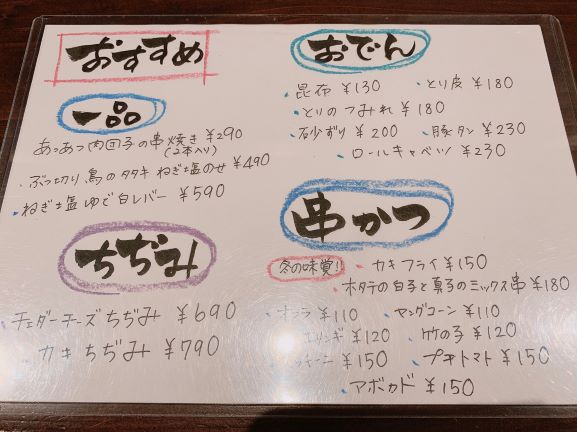 おすすめ
一品
あつあつ肉団子の串焼き ¥290
(2本入り)
・ぶつ切り鳥のタタキ ねぎ塩のせ ¥490
・ねぎ塩ゆで白レバー ¥590
ちぢみ
・チェダーチーズちぢみ ¥690
・カキちぢみ ¥790
おでん
・昆布 ¥130 ・とり皮 ¥180
・とりのつみれ ¥180
・砂ずり ¥200 ・豚タン ¥230
・ロールキャベツ ¥230
串かつ
冬の味覚! ・カキフライ ¥150
・ホタテの白子と真子のミックス串 ¥180
・オクラ ¥110 ・ヤングコーン ¥110
・エリンギ ¥120 ・竹の子 ¥120
・ズッキーニ ¥150 ・プチトマト ¥150
・アボカド ¥150